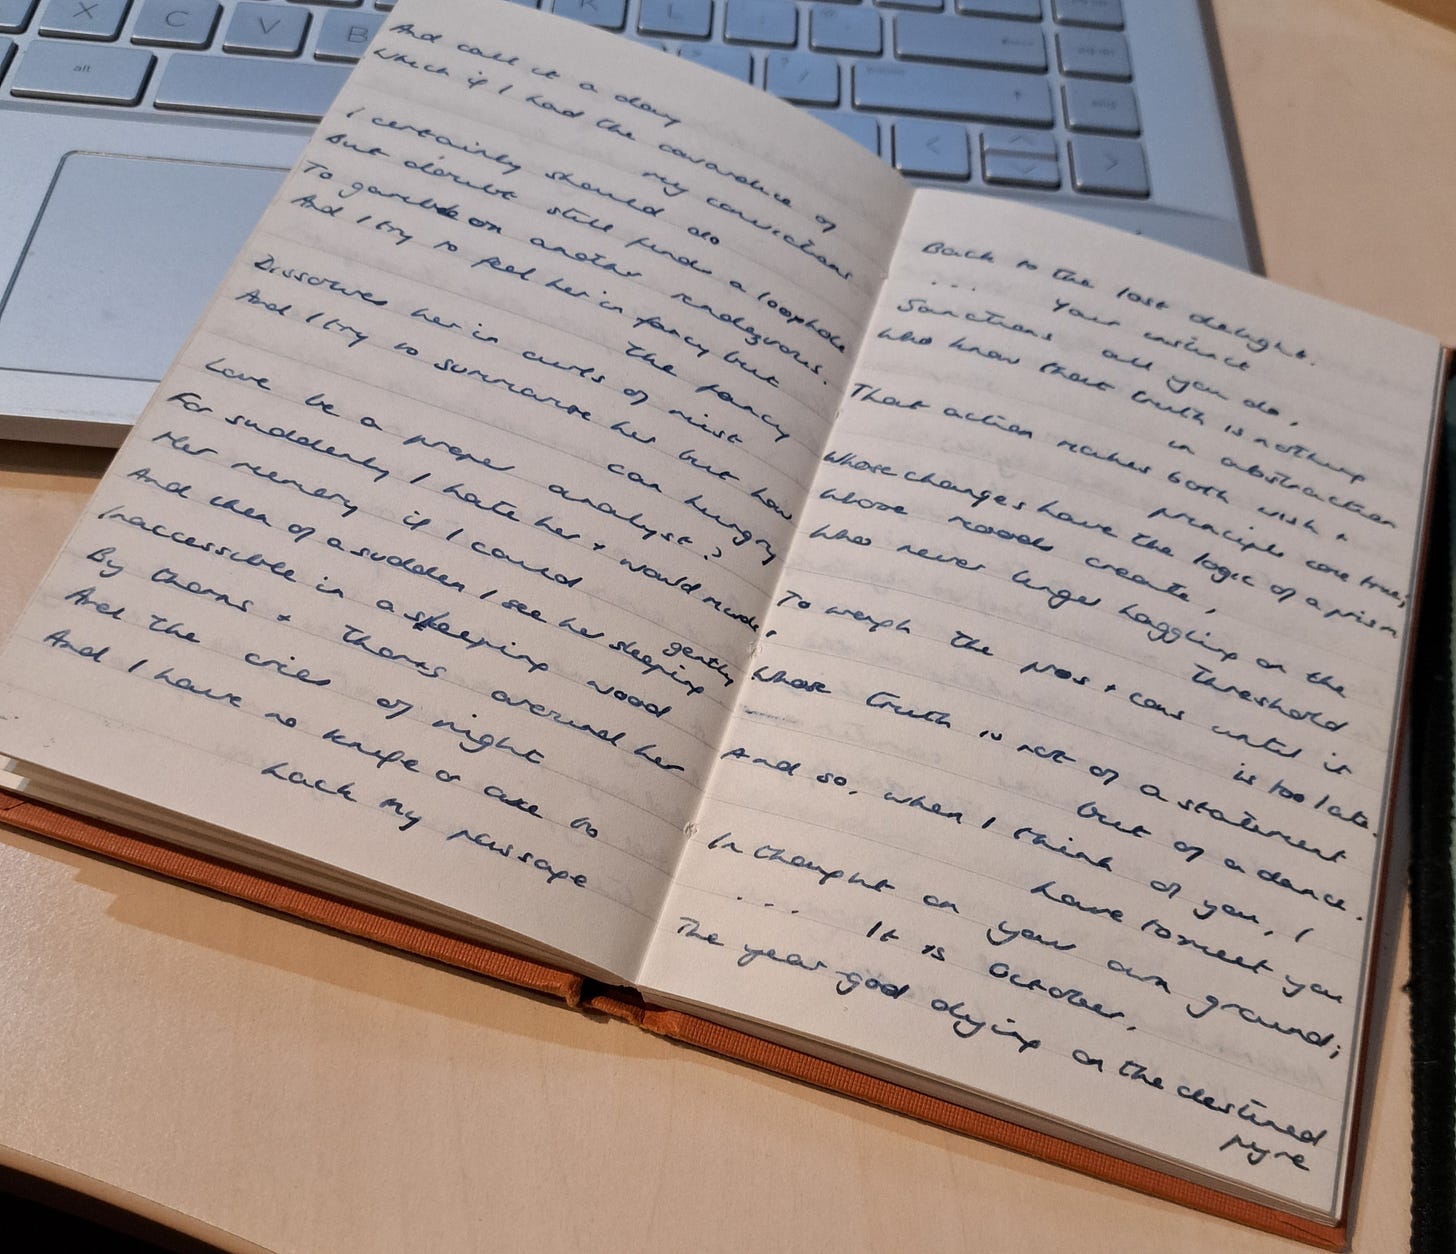 X C V B K L
alt
And call it a day
Which if I had the cowardice of
my convictions
I certainly should do
But doubt still finds a loophole
To gamble on another rendezvous.
And I try to feel her in fancy but
the fancy
Dissolves her in curls of mist
And I try to summarise her but how
can hungry
Love be a proper analyst?
For suddenly I hate her + would murder
Her memory if I could
And then of a sudden I see her sleeping gently
Inaccessible in a sleeping wood
By thorns + thorns around her
And the cries of night
And I have no knife or axe to
hack my passage
Back to the lost delight.
... Your instinct
Sanctions all you do,
Who know that truth is nothing
in abstraction
That action makes both wish +
principle come true;
Whose changes have the logic of a prism
Whose moods create,
Who never linger haggling on the
threshold
To weigh the pros + cons until it
is too late.
Whose truth is not of a statement
but of a dance.
And so, when I think of you, I
have to meet you
In thought on your own ground;
... It is October,
The year-god dying on the destined
pyre